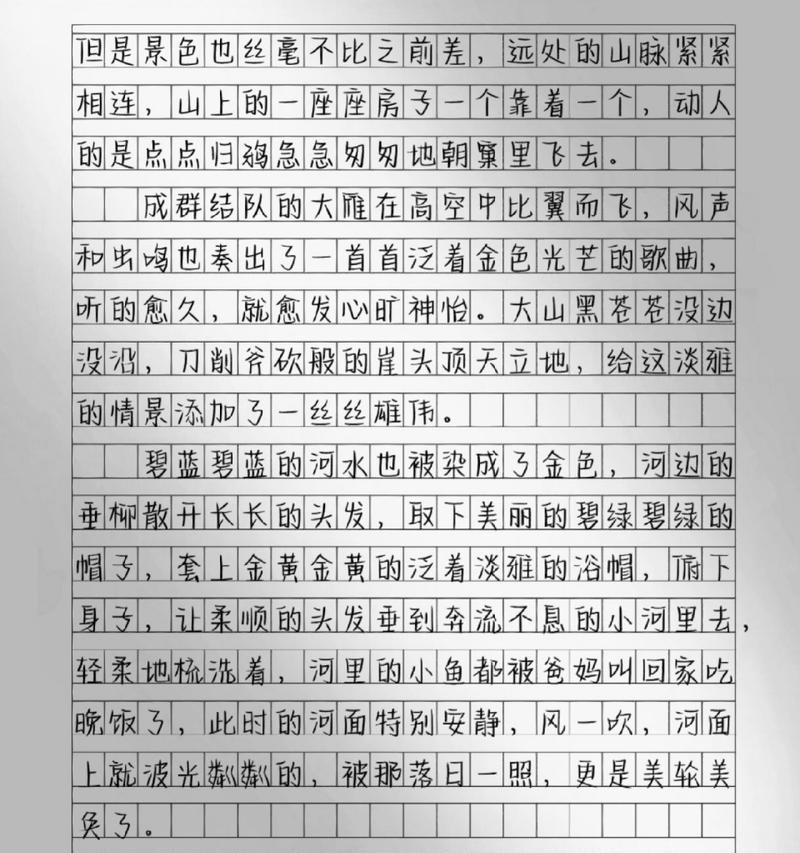 但是景色也丝毫不比之前差，远处的山脉紧紧
相连，山上的一座座房子一个靠着一个，动人
的是点点归鸦急急匆匆地朝窠里飞去。
成群结队的大雁在高空中比翼而飞，风声
和虫鸣也奏出了一首首泛着金色光芒的歌曲，
听的愈久，就愈发心旷神怡。大山黑苍苍没边
没沿，刀削斧砍般的崖头顶天立地，给这淡雅
的情景添加了一丝丝雄伟。
碧蓝碧蓝的河水也被染成了金色，河边的
垂柳散开长长的头发，取下美丽的碧绿碧绿的
帽子，套上金黄金黄的泛着淡雅的浴帽，俯下
身子，让柔顺的头发垂到奔流不息的小河里去，
轻柔地梳洗着，河里的小鱼都被爸妈叫回家吃
晚饭了，此时的河面特别安静，风一吹，河面
上就波光粼粼的，被那落日一照，更是美轮美
奂了。